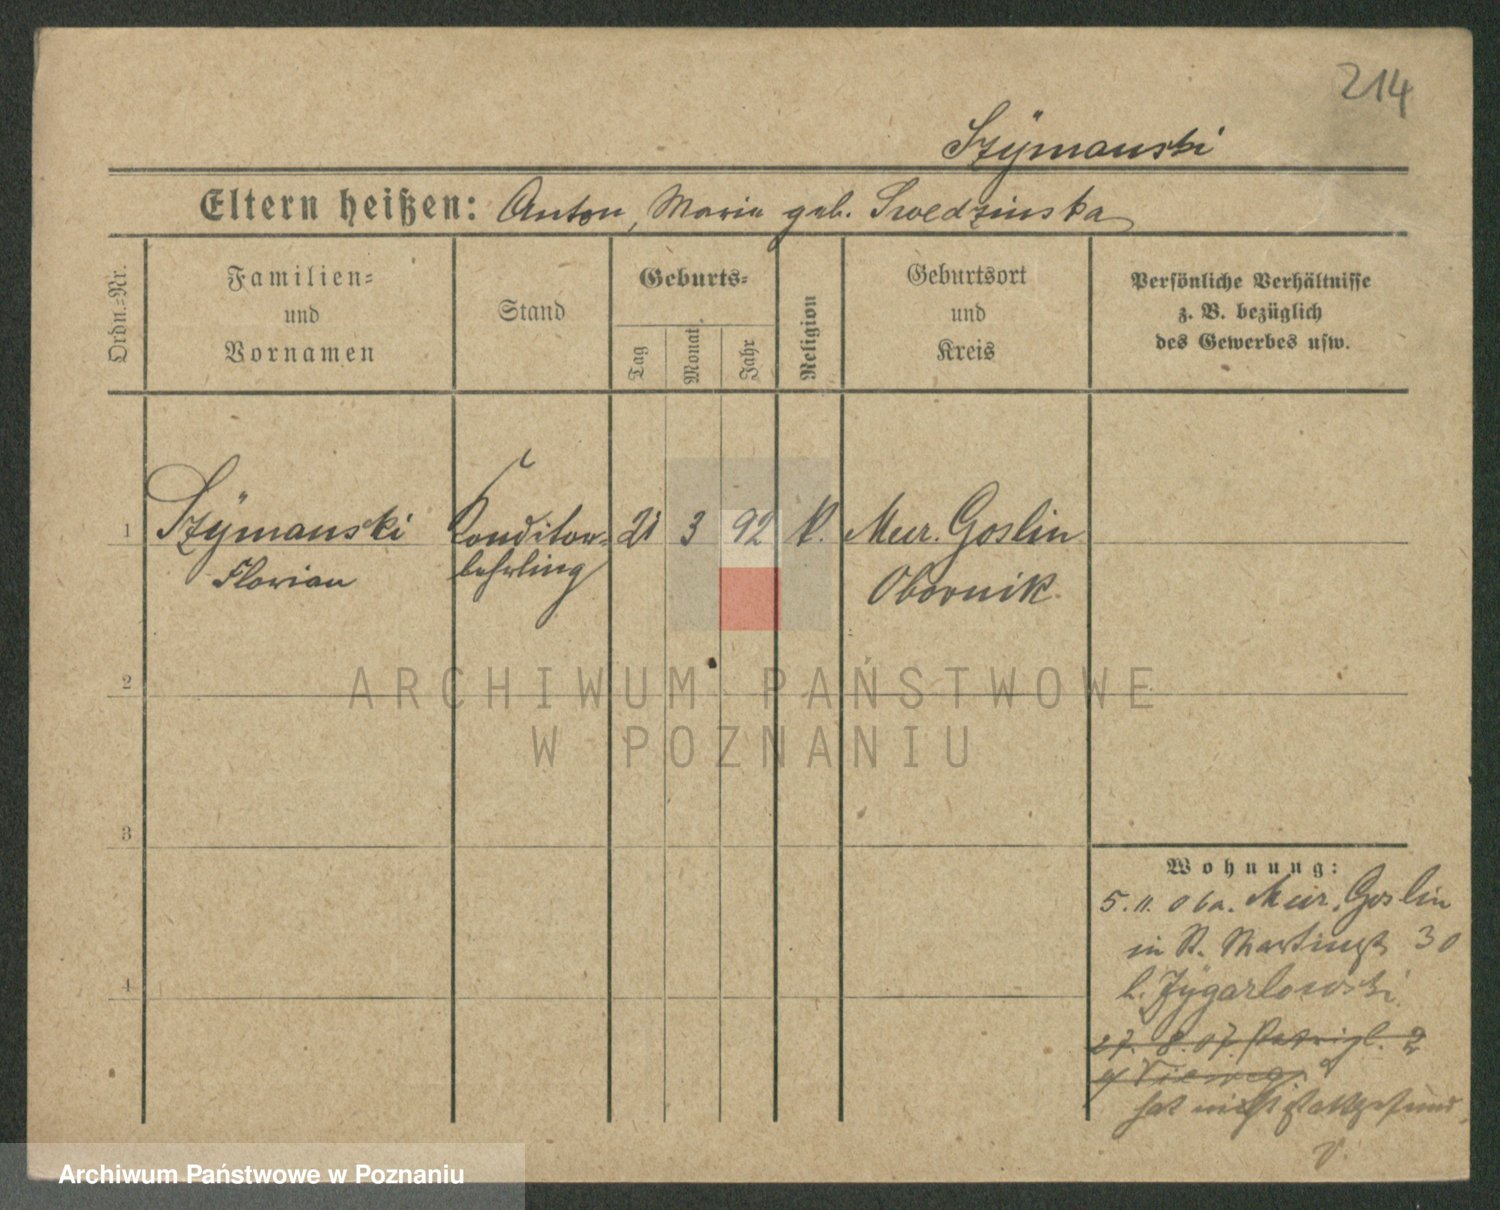 214
Szÿmanski
Eltern heißen: Anton, Maria geb. Swedzinska
Ordn.-Nr.
Familien-
und
Vornamen
Stand
Geburts-
Tag
Monat
Jahr
Religion
Geburtsort
und
Kreis
Persönliche Verhältnisse
z. B. bezüglich
des Gewerbes usw.
1 Szÿmanski Konditor- 21 3 92 K. Mur. Goslin
Florian lehrling Obornik
2
3
4
Wohnung:
5. 11. 06 a. Mur. Goslin
in St. Martinstr 30
b. Zÿgarlowski
27. 8. 07. 2
hat nicht stattgefund.
ARCHIWUM PAŃSTWOWE
W POZNANIU
Archiwum Państwowe w Poznaniu